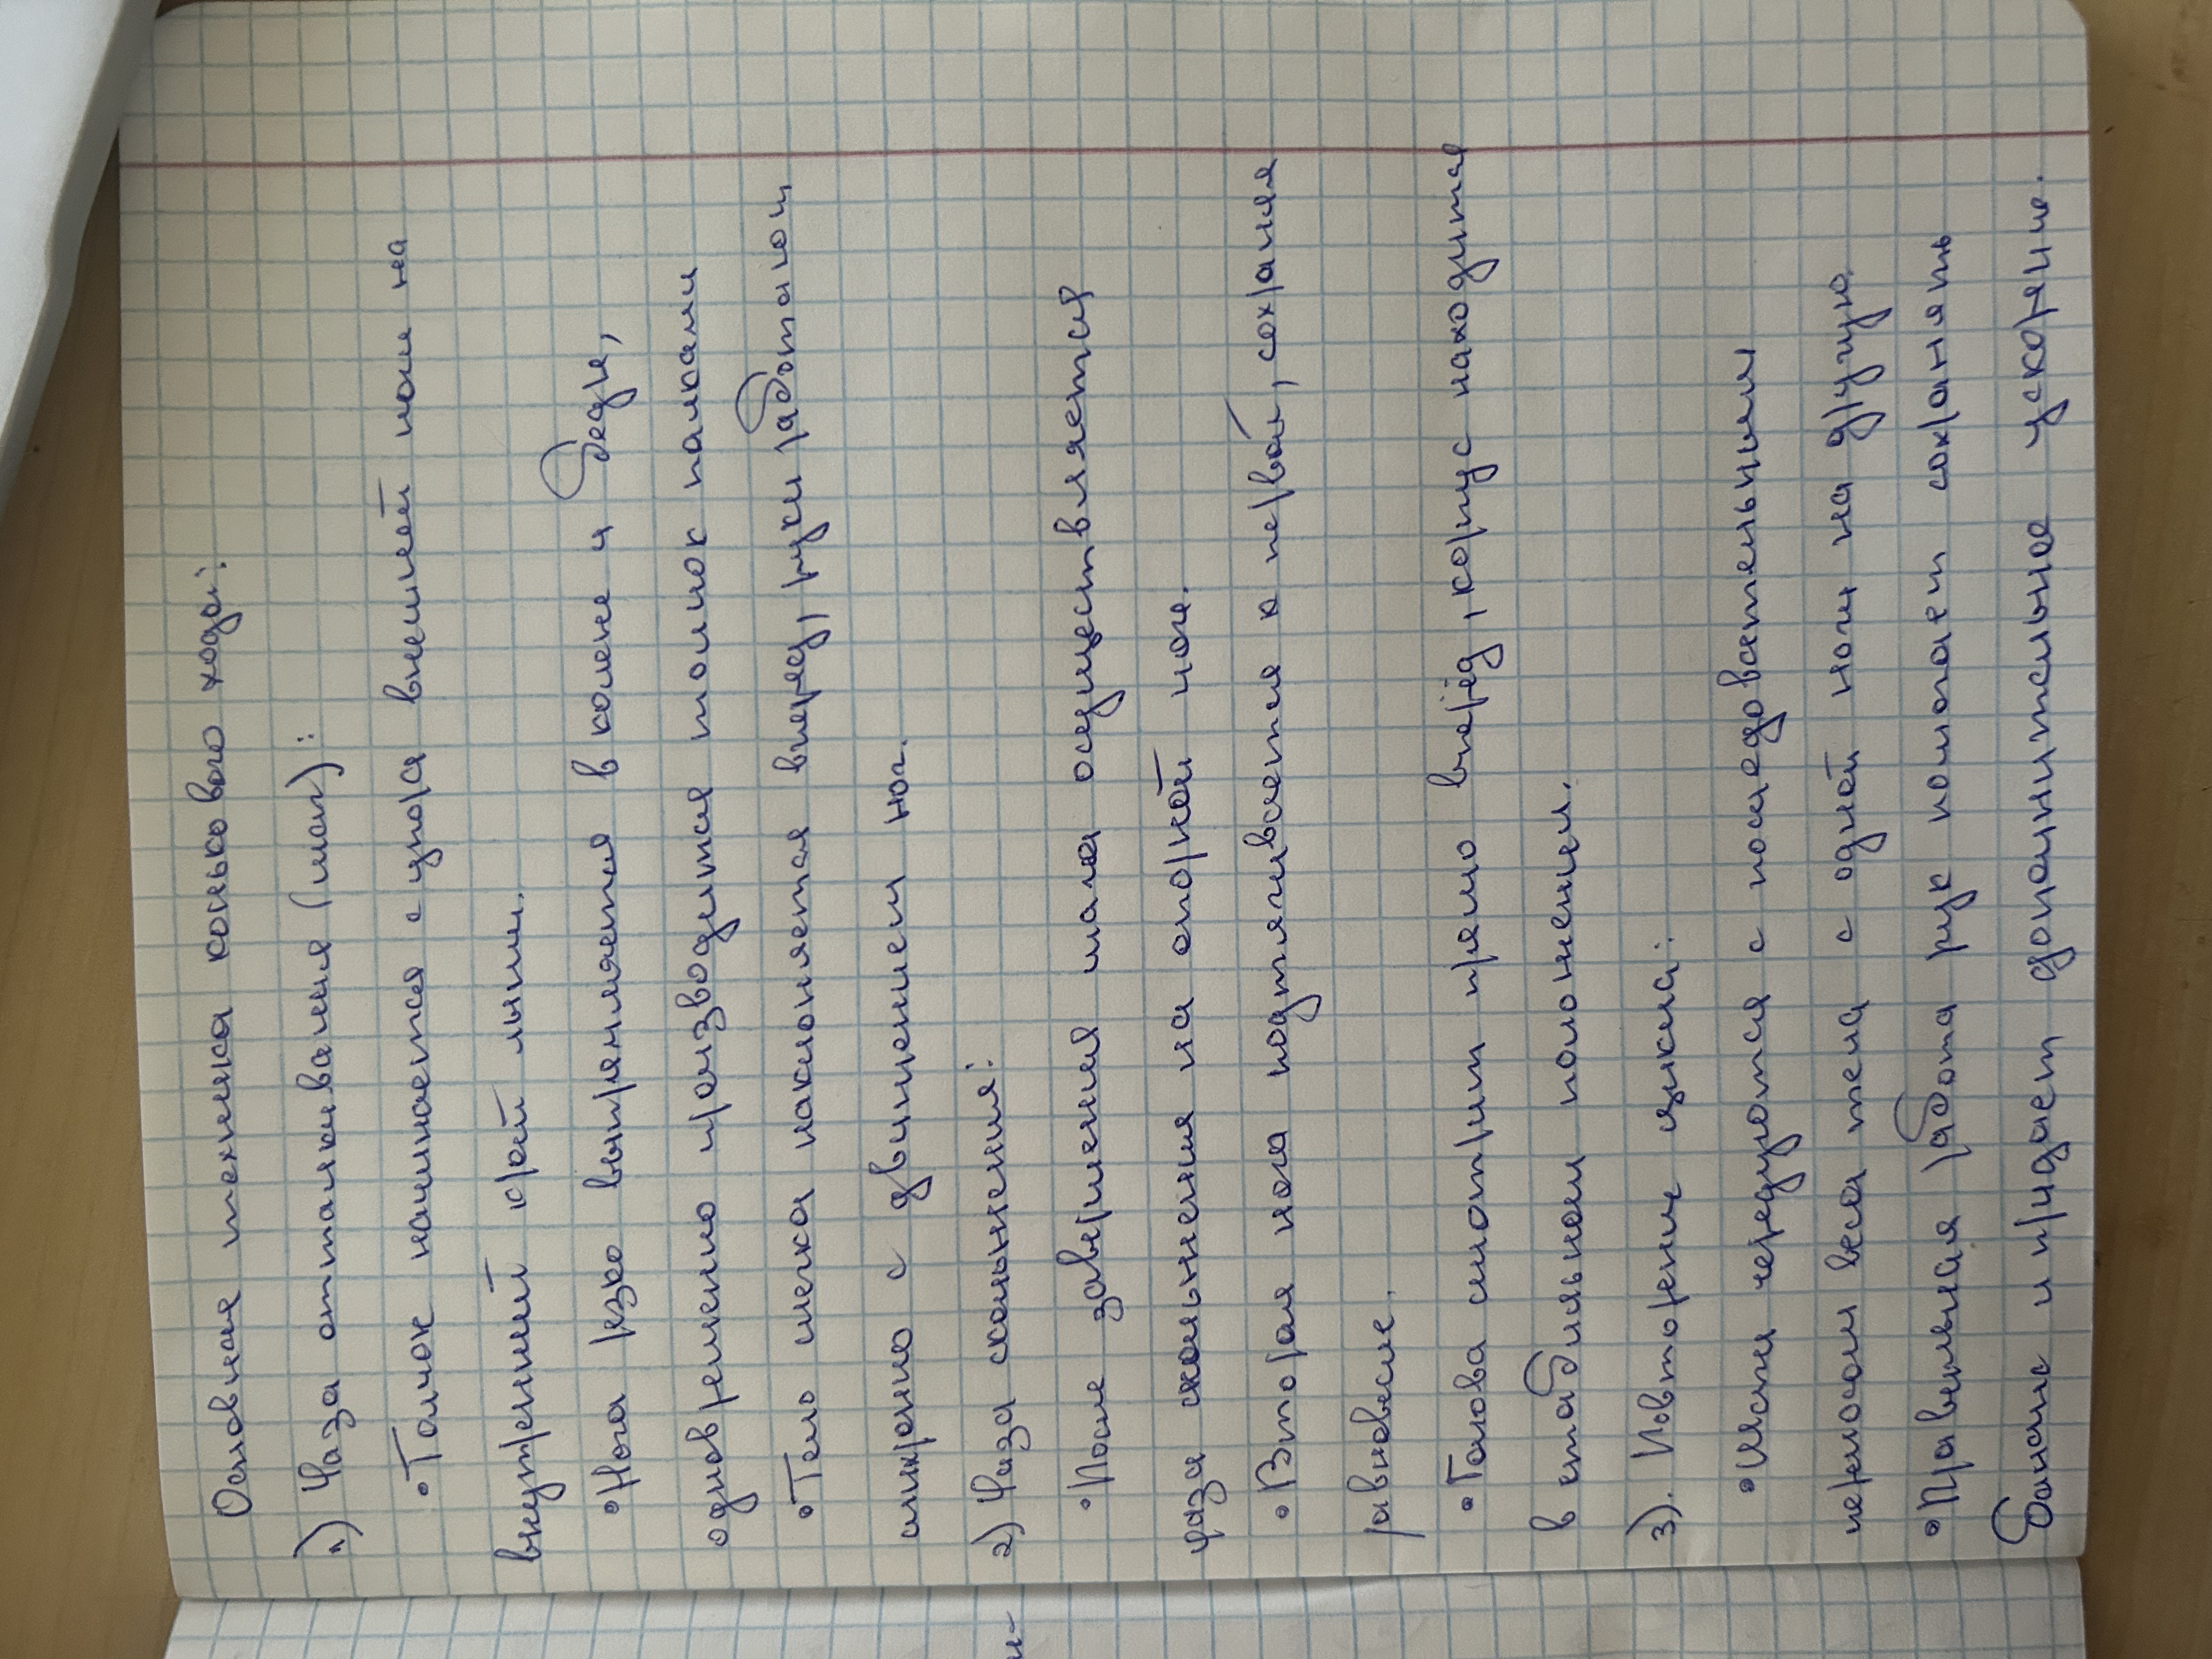 Основная техника конькового хода:
1) Фаза отталкивания (шаг):
• Толчок начинается с упора внешней ноги на
внутренний край лыжи.
• Нога резко выпрямляется в колене и бедре,
одновременно производится толчок палками
• Тело слегка наклоняется вперед, руки работают
синхронно с движением ног.
2) Фаза скольжения:
• После завершения шага осуществляется
фаза скольжения на опорной ноге.
• Вторая нога подтягивается к первой, сохраняя
равновесие.
• Голова смотрит прямо вперёд, корпус находится
в стабильном положении.
3). Повторение цикла:
• Шаги чередуются с последовательным
переносом веса тела с одной ноги на другую.
• Правильная работа рук помогает сохранять
баланс и придает дополнительное ускорение.
и-